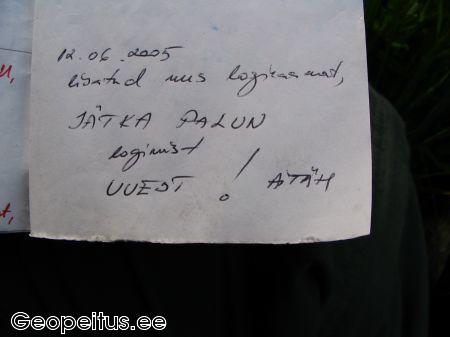 12.06.2005
lisatud uus logiraamat,
JÄTKA PALUN
logimist
UUEST! AITÄH
Geopeitus.ee